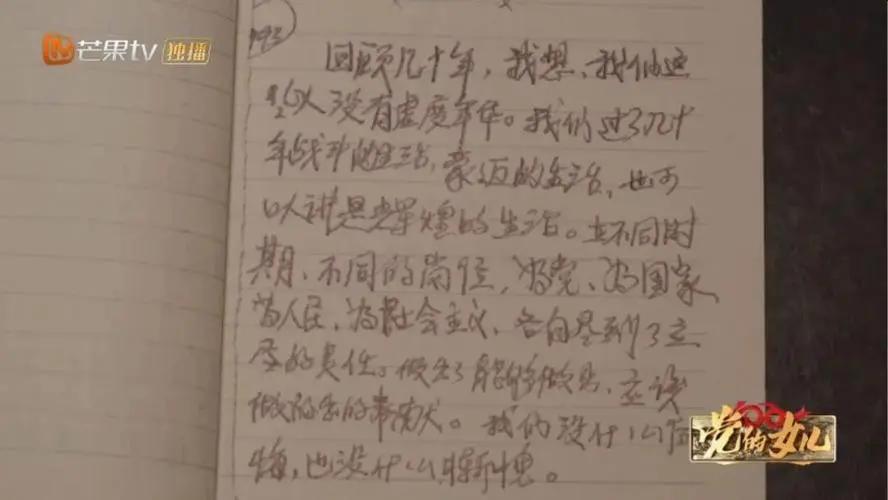 芒果tv 独播
193
回顾几十年，我想，我们这
些人没有虚度年华。我们过了几十
年战斗的生活，豪迈的生活，也可
以讲是辉煌的生活。在不同时
期、不同的岗位，为党、为国家、
为人民、为社会主义，各自尽到了应
尽的责任。做出了能够做出、应该
做的出的奉献。我们没什么后
悔，也没什么惭愧。
党的女儿